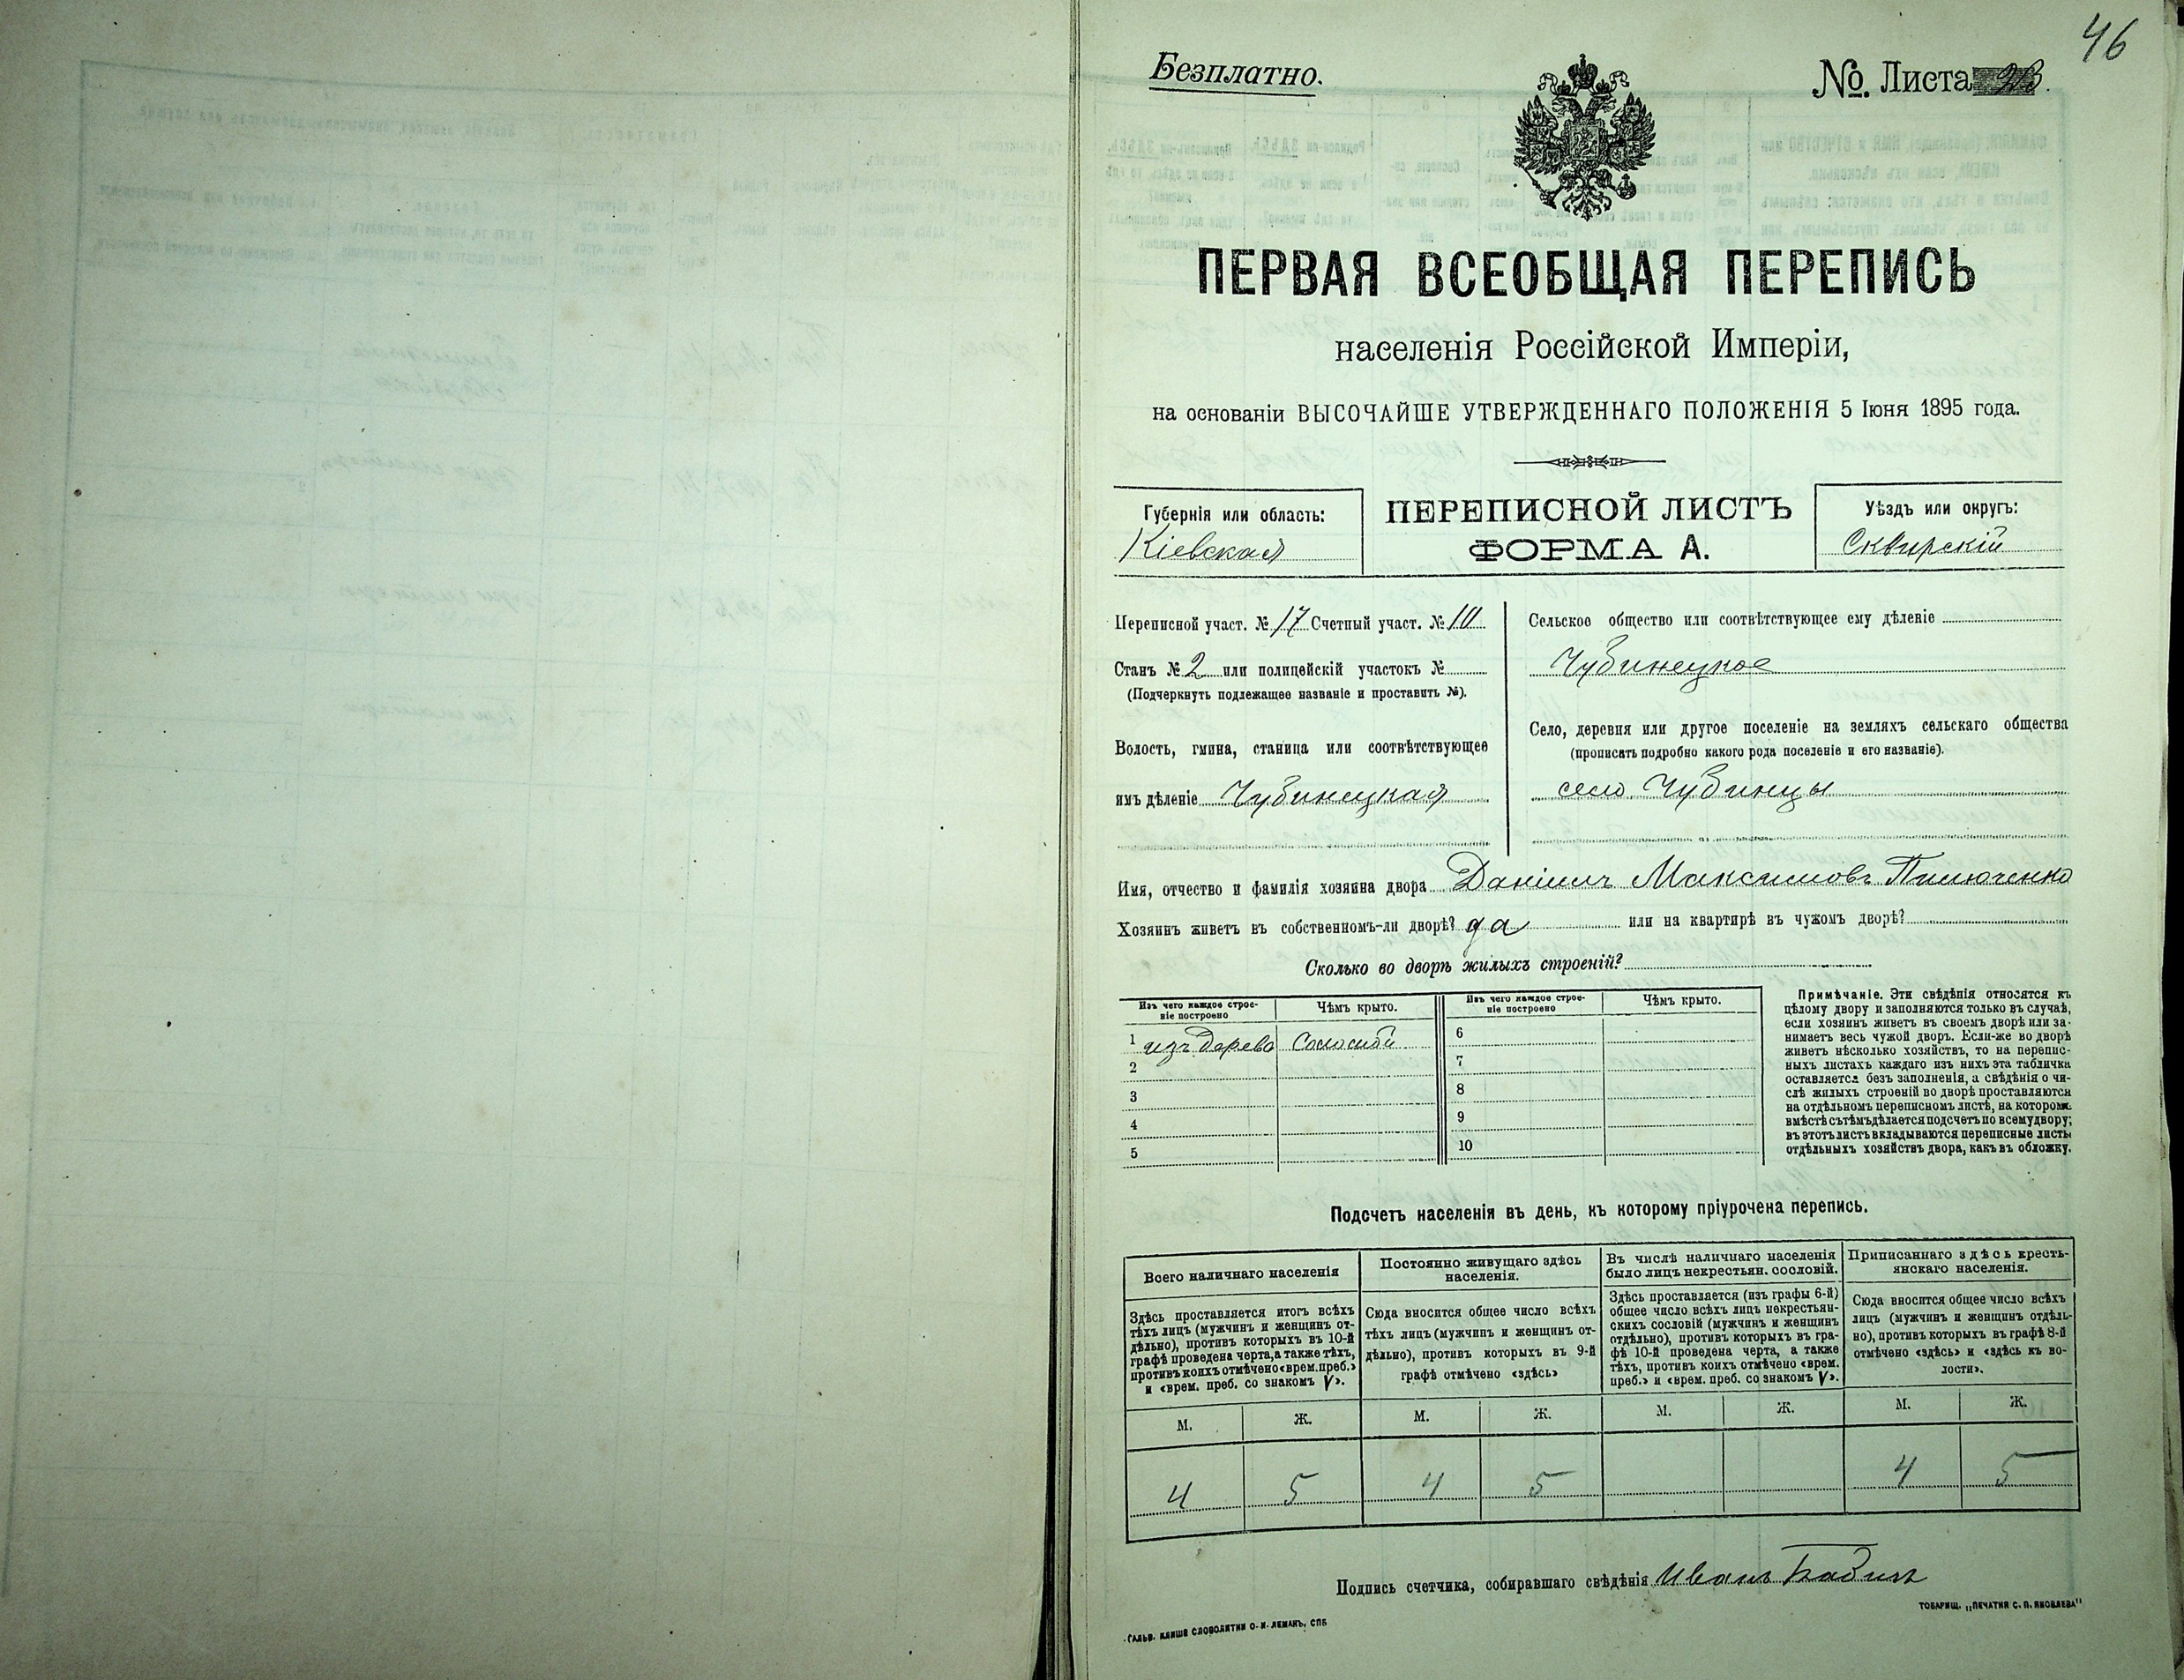 46
Безплатно.
№ Листа
ПЕРВАЯ ВСЕОБЩАЯ ПЕРЕПИСЬ
населенія Россійской Имперіи,
на основаніи ВЫСОЧАЙШЕ УТВЕРЖДЕННАГО ПОЛОЖЕНІЯ 5 Іюня 1895 года.
Губернія или область:
Кіевская
ПЕРЕПИСНОЙ ЛИСТЪ
ФОРМА А.
Уѣздъ или округъ:
Сквирскій
Переписной участ. № 17 Счетный участ. № 10
Станъ № 2 или полицейскій участокъ №
(Подчеркнуть подлежащее названіе и проставить №).
Волость, гмина, станица или соотвѣтствующее
имъ дѣленіе Чубинецкая
Сельское общество или соотвѣтствующее ему дѣленіе
Чубинецкое
Село, деревня или другое поселеніе на земляхъ сельскаго общества
(прописать подробно какого рода поселеніе и его названіе).
село Чубинцы
Имя, отчество и фамилія хозяина двора Даніилъ Максимовъ Пилюченко
Хозяинъ живетъ въ собственномъ-ли дворѣ? да или на квартирѣ въ чужомъ дворѣ?
Сколько во дворѣ жилыхъ строеній?
Изъ чего каждое строе-
ніе построено
Чѣмъ крыто.
Изъ чего каждое строе-
ніе построено
Чѣмъ крыто.
1 изъ дерева Соломой
2
3
4
5
6
7
8
9
10
Примѣчаніе. Эти свѣдѣнія относятся къ
цѣлому двору и заполняются только въ случаѣ,
если хозяинъ живетъ въ своемъ дворѣ или за-
нимаетъ весь чужой дворъ. Если-же во дворѣ
живетъ нѣсколько хозяйствъ, то на перепис-
ныхъ листахъ каждаго изъ нихъ эта табличка
оставляется безъ заполненія, а свѣдѣнія о чи-
слѣ жилыхъ строеній во дворѣ проставляются
на отдѣльномъ переписномъ листѣ, на которомъ
вмѣстѣ съ тѣмъ дѣлается подсчетъ по всему двору;
въ этотъ листъ вкладываются переписные листы
отдѣльныхъ хозяйствъ двора, какъ въ обложку.
Подсчетъ населенія въ день, къ которому пріурочена перепись.
Всего наличнаго населенія
Здѣсь проставляется итогъ всѣхъ
тѣхъ лицъ (мужчинъ и женщинъ от-
дѣльно), противъ которыхъ въ 10-й
графѣ проведена черта, а также тѣхъ,
противъ коихъ отмѣчено «врем. преб.»
и «врем. преб. со знакомъ V».
Постоянно живущаго здѣсь
населенія.
Сюда вносится общее число всѣхъ
тѣхъ лицъ (мужчинъ и женщинъ от-
дѣльно), противъ которыхъ въ 9-й
графѣ отмѣчено «здѣсь»
Въ числѣ наличнаго населенія
было лицъ некрестьян. сословій.
Здѣсь проставляется (изъ графы 6-й)
общее число всѣхъ лицъ некрестьян-
скихъ сословій (мужчинъ и женщинъ
отдѣльно), противъ которыхъ въ гра-
фѣ 10-й проведена черта, а также
тѣхъ, противъ коихъ отмѣчено «врем.
преб.» и «врем. преб. со знакомъ V».
Приписаннаго здѣсь кресть-
янскаго населенія.
Сюда вносится общее число всѣхъ
лицъ (мужчинъ и женщинъ отдѣль-
но), противъ которыхъ въ графѣ 8-й
отмѣчено «здѣсь» и «здѣсь къ во-
лости».
М. Ж. М. Ж. М. Ж. М. Ж.
4 5 4 5 4 5
Подпись счетчика, собиравшаго свѣдѣнія Иванъ
ГАЛЬВ. КЛИШЕ СЛОВОЛИТНИ О. И. ЛЕМАНЪ, СПБ
ТОВАРИЩ. „ПЕЧАТНЯ С. П. ЯКОВЛЕВА"